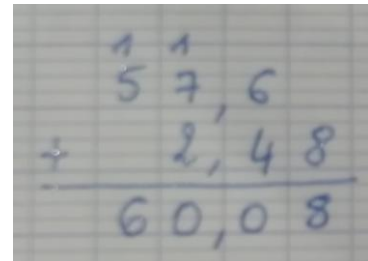 1 1
5 7,6
+ 2,4 8
6 0,0 8